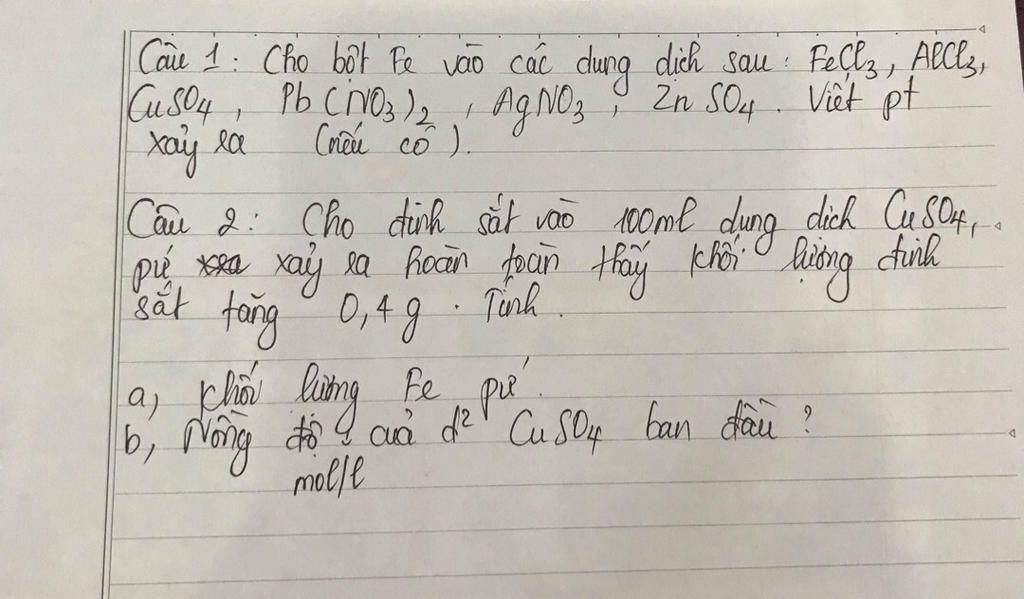 Câu 1: Cho bột Fe vào các dung dịch sau: FeCl3, AlCl3,
CuSO4, Pb(NO3)2, AgNO3, ZnSO4. Viết pt
xảy ra (nếu có).
Câu 2: Cho đinh sắt vào 100ml dung dịch CuSO4,
pứ xảy ra hoàn toàn thấy khối lượng đinh
sắt tăng 0,4g. Tính.
a, Khối lượng Fe pứ.
b, Nồng độ của d² CuSO4 ban đầu?
mol/l